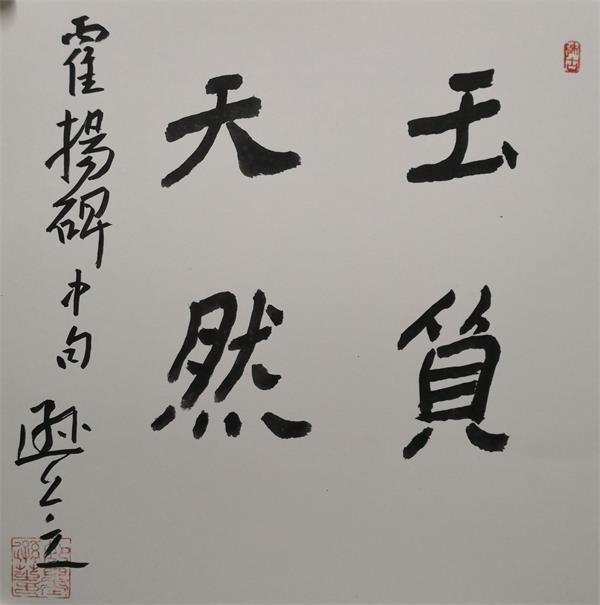 玉質
天然
霍揚碑中句